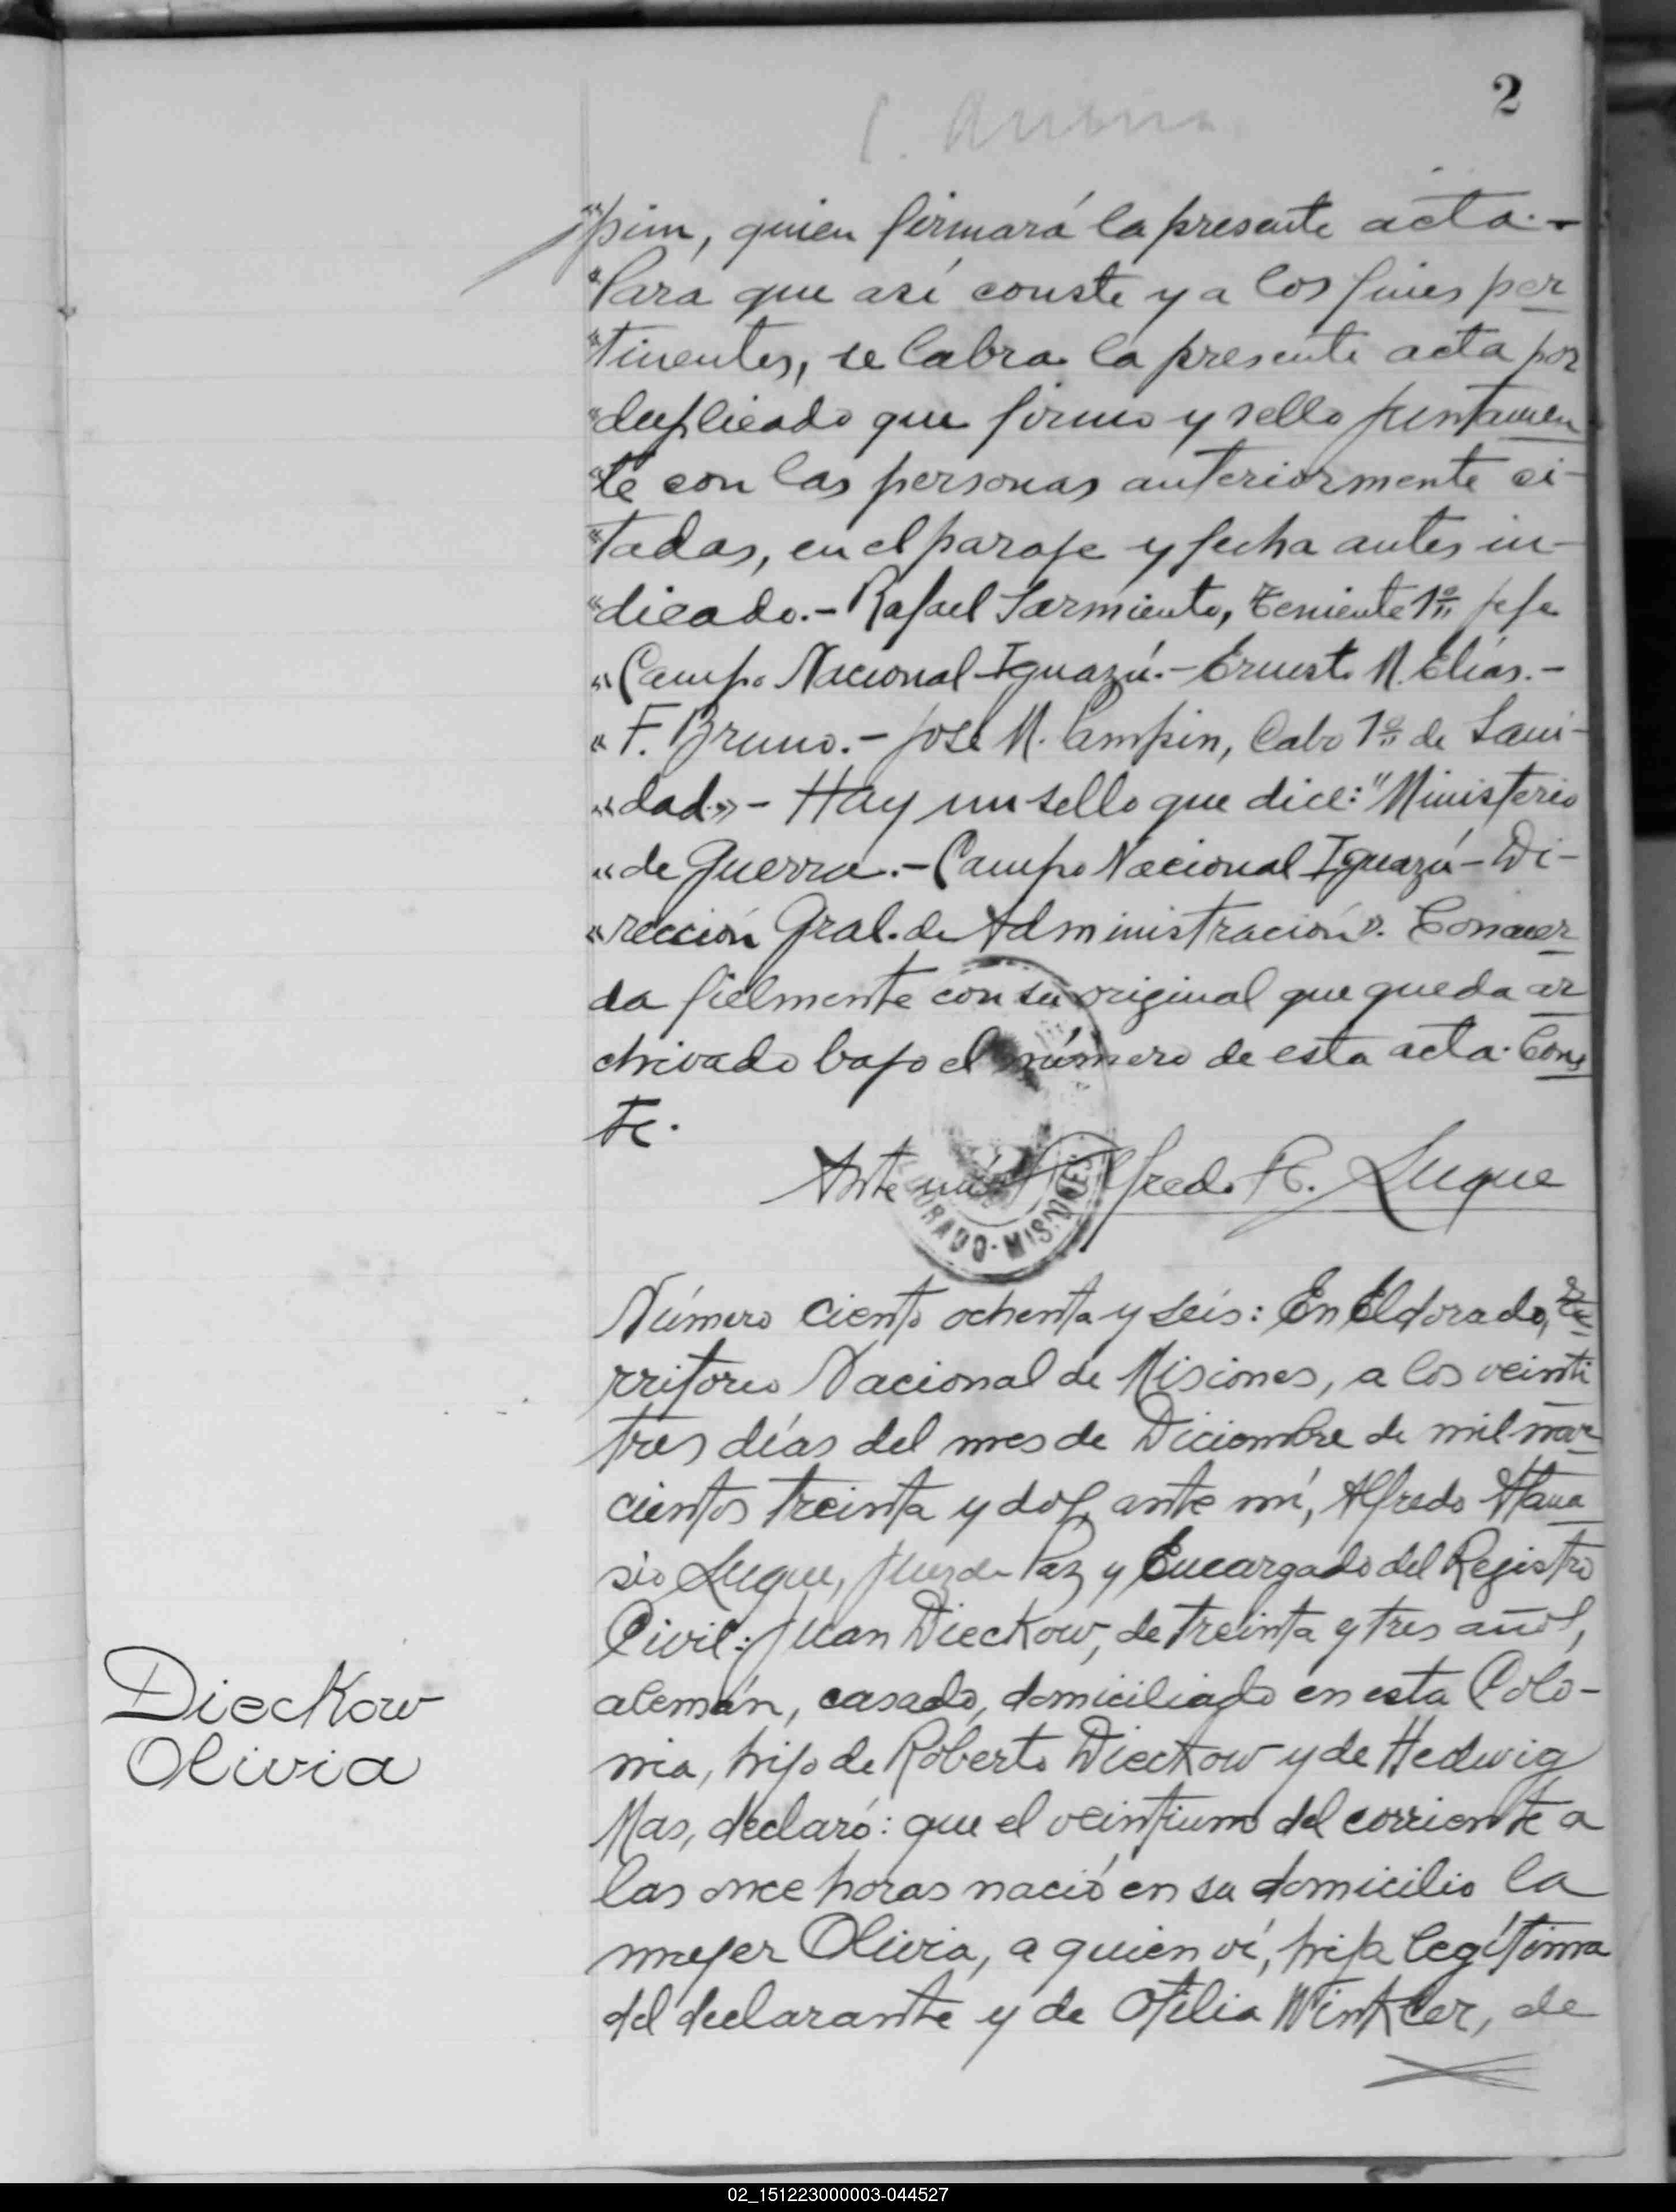 2
"pim, quien firmará la presente acta.-
"Para que así conste y a los fines per
"tinentes, se labra la presente acta por
"duplicado que firmo y sello juntamen
"te con las personas anteriormente ci-
"tadas, en el paraje y fecha antes in-
"dicado.- Rafael Sarmiento, Teniente 1º Jefe
"Campo Nacional Iguazú.- Ernesto M. Elías.-
"F. Bruno.- José M. Campin, Cabo 1º de Sani-
"dad"- Hay un sello que dice: "Ministerio
"de Guerra.- Campo Nacional Iguazú- Di-
"rección Gral. de Administración". Concuer
da fielmente con su original que queda ar
chivado bajo el número de esta acta. Cons
te.
Ante mí Alfredo A. Luque
ELDORADO-MISIONES
Número ciento ochenta y seis: En Eldorado, Te
rritorio Nacional de Misiones, a los veinti
tres días del mes de Diciembre de mil nove
cientos treinta y dos, ante mí, Alfredo Atana
sio Luque, Juez de Paz y Encargado del Registro
Civil: Juan Dieckow, de treinta y tres años,
alemán, casado, domiciliado en esta Colo-
nia, hijo de Roberto Dieckow y de Hedwig
Mas, declaró: que el veintiuno del corriente a
las once horas nació en su domicilio la
mujer Olivia, a quien ví, hija legítima
del declarante y de Otilia Winkler, de
Dieckow
Olivia
02_151223000003-044527